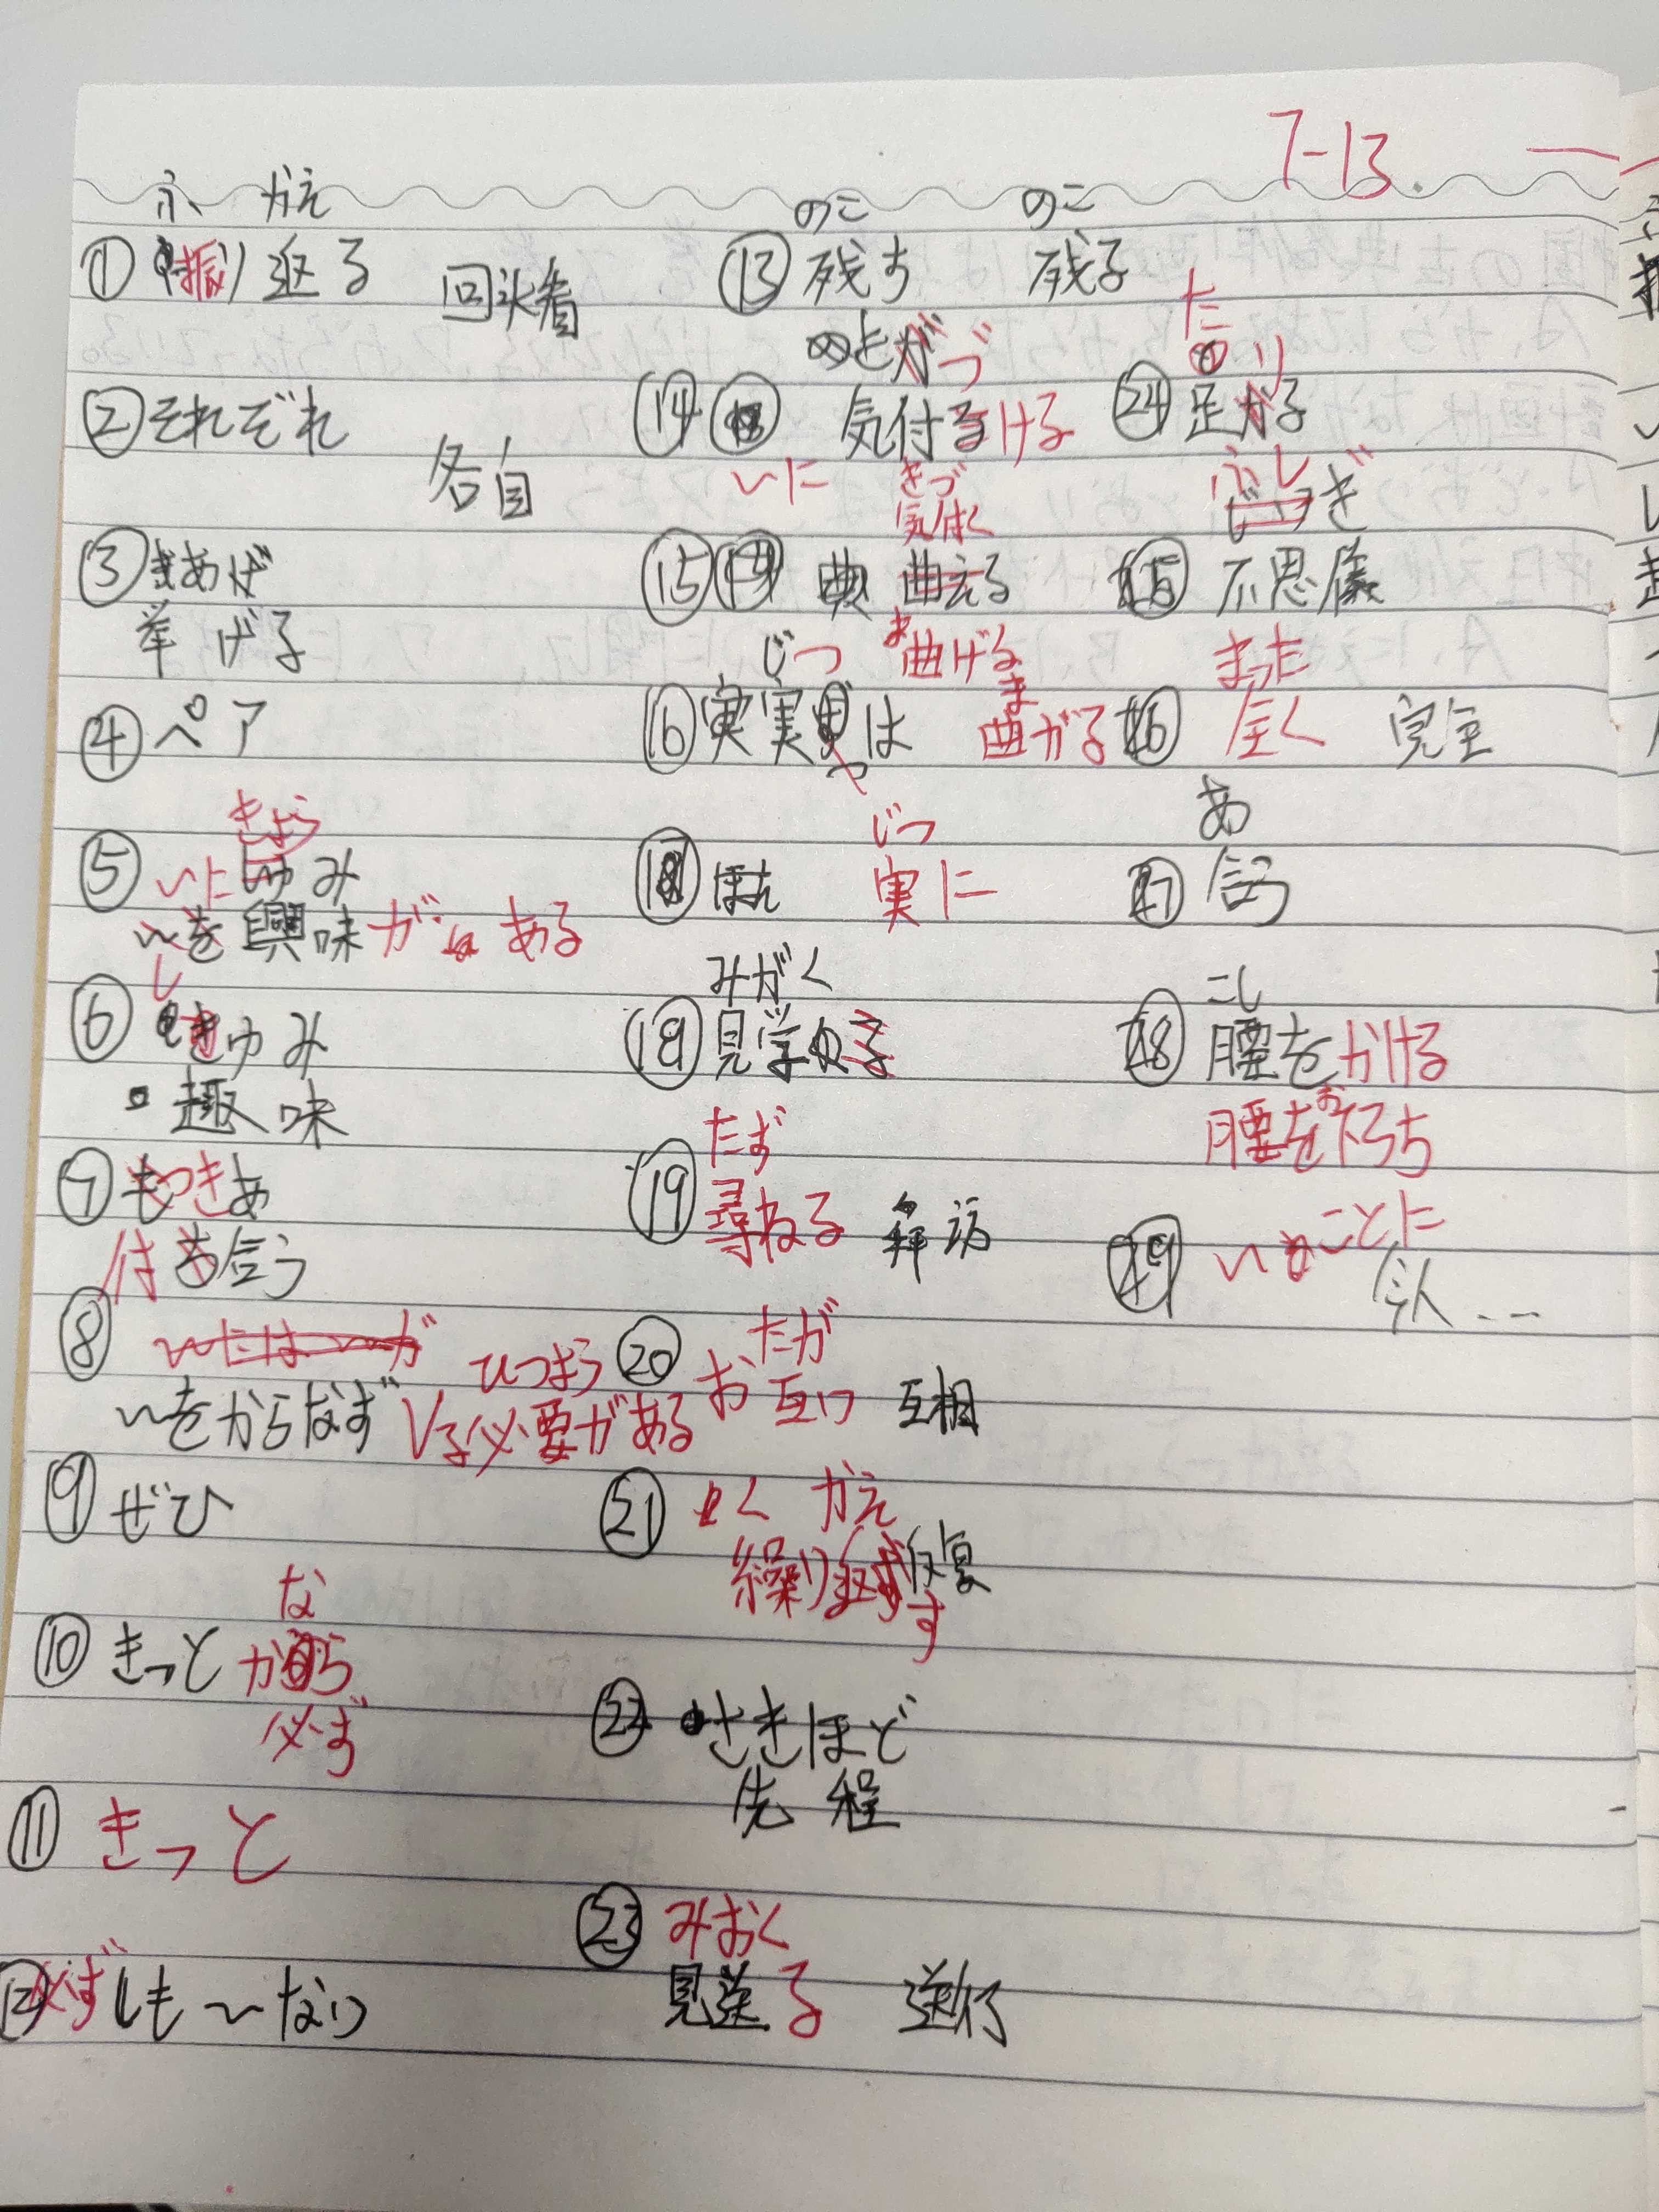 7-13.
ふ かえ
① 振り返る 回头看
② それぞれ
各自
③ あげ
挙げる
④ ペア
きょう
⑤ 〜に しゅみ
〜を 興味 が ある
し
⑥ きゅみ
趣味
⑦ もつきあ
付き合う
⑧ 〜たは 〜が
〜をからなず する必要がある
ひつよう
⑨ ぜひ
な
⑩ きっと かならず
必ず
⑪ きっと
⑫ 必ずしも〜ない
のこ のこ
⑬ 残す 残る
づ
⑭ 気付ける
〜に きづ
気付く
⑮ 曲 曲える
ま
曲げる
じつ ま
⑯ 実実は 曲がる
じつ
⑱ ほん 実に
みがく
⑱ 見学する
たず
⑲ 尋ねる 拜访
たが
⑳ お互い 互相
く かえ
㉑ 繰り返す 反复
す
㉒ さきほど
先程
㉓ みおく
見送る 送行
た
り
㉔ 足りる
ふしぎ
㉕ 不思議
まった
㉖ 全く 完全
あ
㉗ 合う
こし
㉘ 腰をかける
お
腰を下ろち
㉙ 〜ことに
令人...